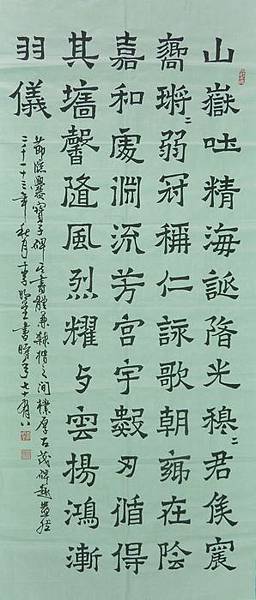 山嶽吐精海誕降光穆〻君侯震
嚮鏘〻弱冠稱仁詠歌朝鄉在陰
嘉和處淵流芳宮宇數刃循得
其墻馨隆風烈耀与雲揚鴻漸
羽儀
節臨爨寶子碑其書體兼隸楷之間樸厚古茂碑趣盎然
二千十三年秋月書時年七十有八